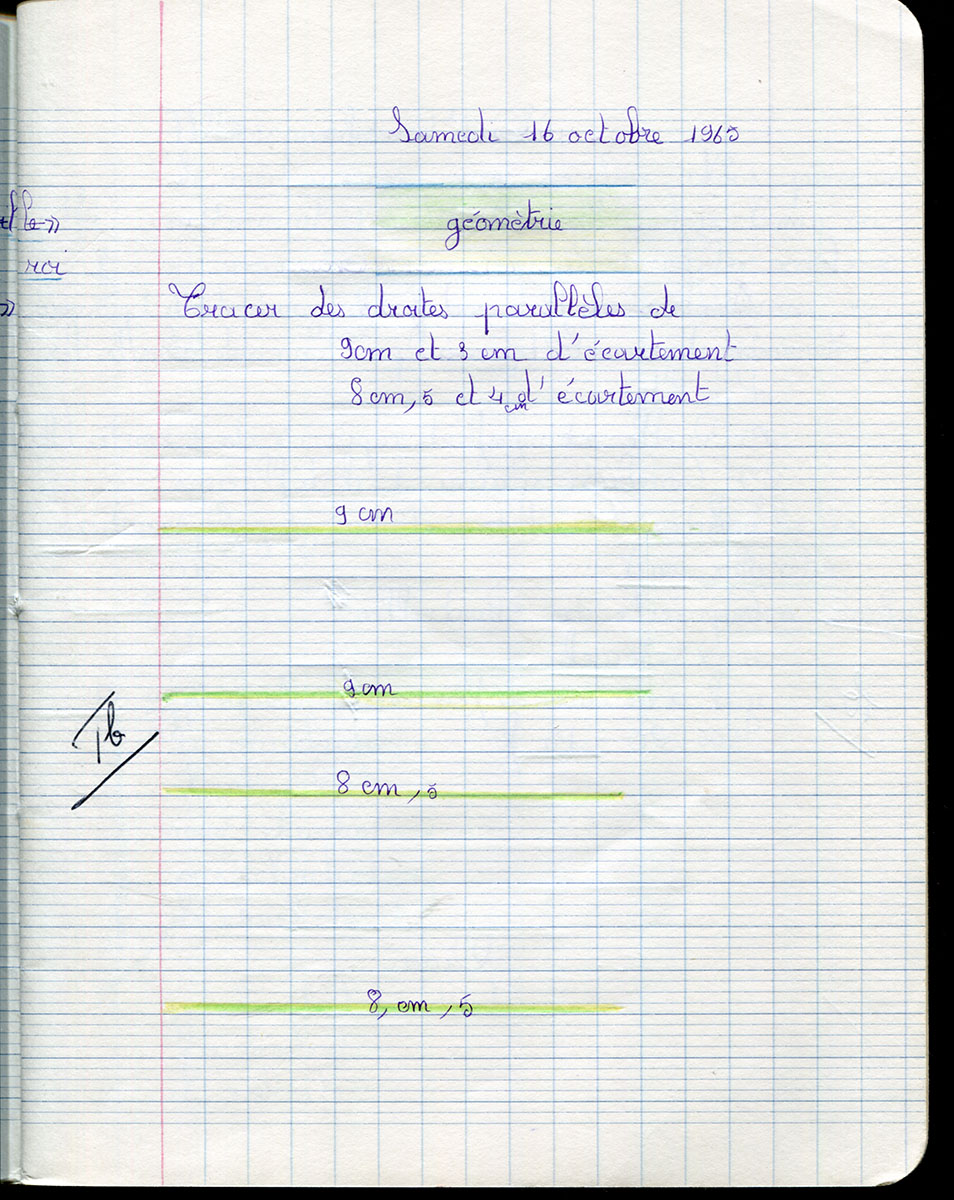 Samedi 16 octobre 1965
géométrie
Tracer des droites parallèles de
9cm et 3 cm d'écartement
8 cm, 5 et 4 cm d'écartement
9 cm
9 cm
Tb
8 cm, 5
8, cm, 5